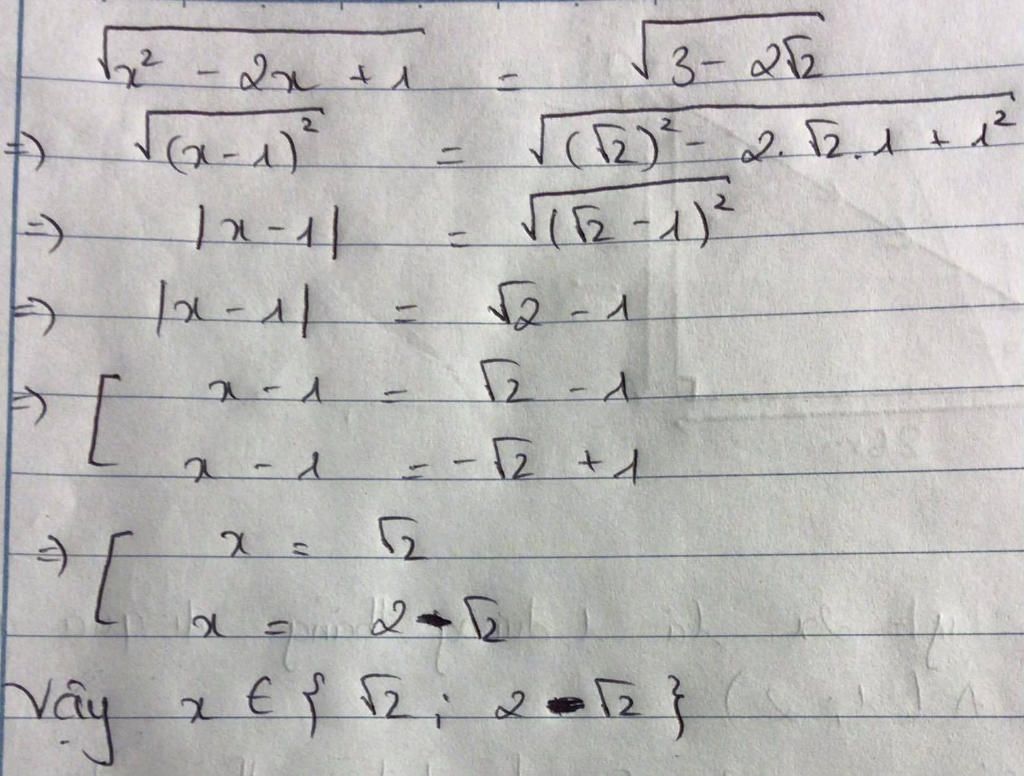 √(x² - 2x + 1) = √(3 - 2√2)
=> √((x - 1)²) = √((√2)² - 2.√2.1 + 1²)
=> |x - 1| = √((√2 - 1)²)
=> |x - 1| = √2 - 1
=> [ x - 1 = √2 - 1
x - 1 = -√2 + 1
=> [ x = √2
x = 2 - √2
Vậy x ∈ { √2 ; 2 - √2 }